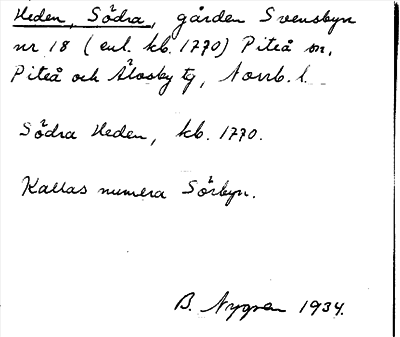 Heden, Södra, gården Svensbyn
nr 18 (enl. kb. 1770) Piteå sn,
Piteå och Älvsby tg, Norrb. l.
Södra Heden, kb. 1770.
Kallas numera Sörbyn.
B. Nygren 1934.